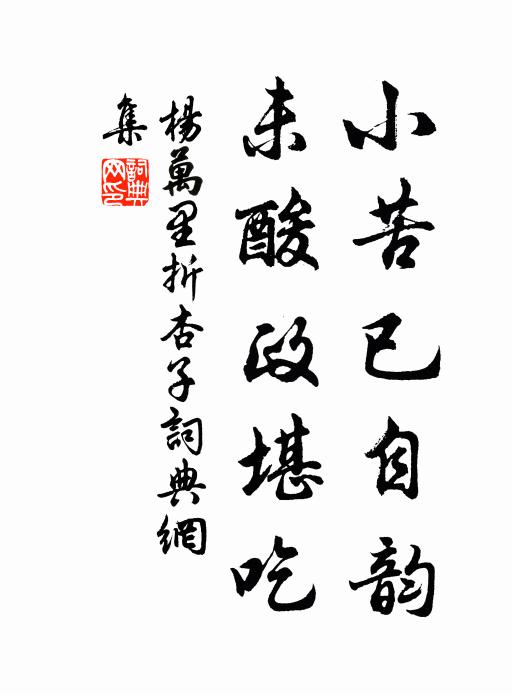 小苦已自韵
未酸政堪吃
楊萬里折杏子詞典網
集
詞典
网印